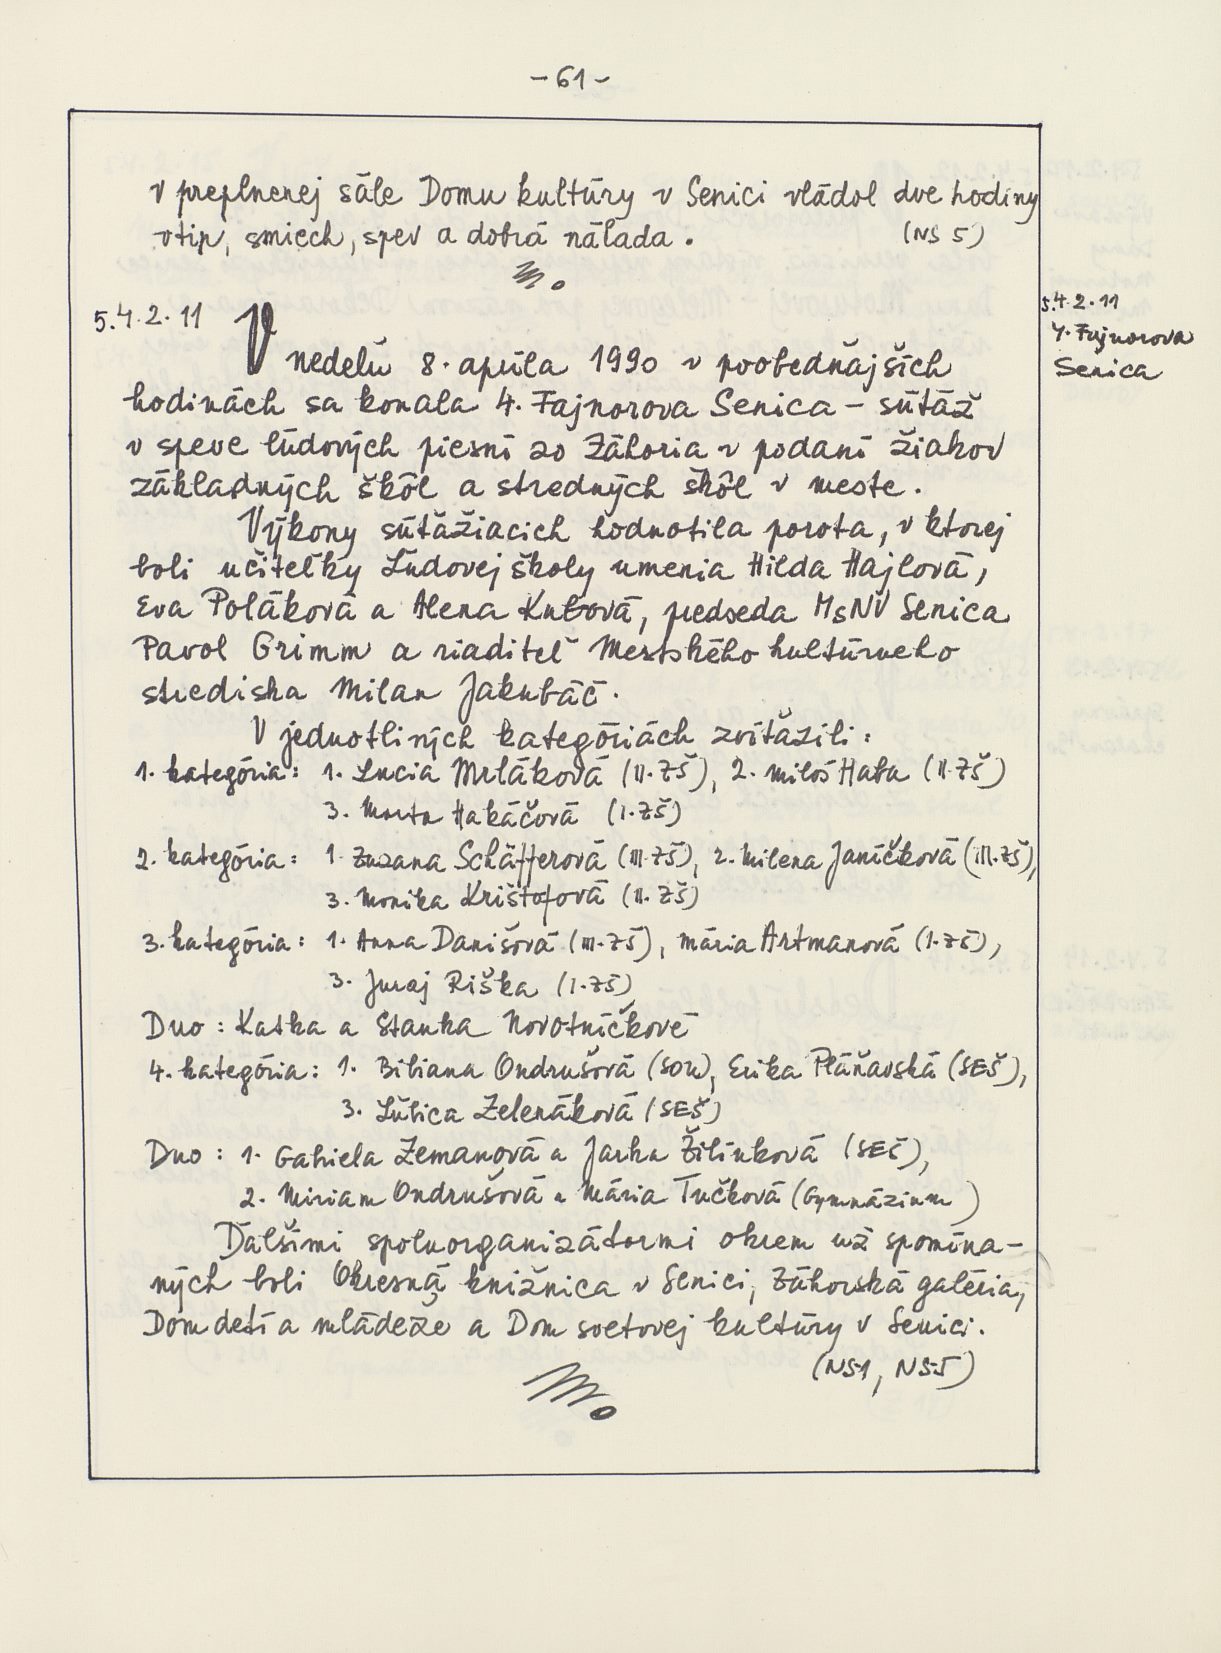 - 61 -
v preplnenej sále Domu kultúry v Senici vládol dve hodiny
vtip, smiech, spev a dobrá nálada.
(NS 5)
5.4.2.11
5.4.2.11
4. Fajnorova
Senica
V nedeľu 8. apríla 1990 v poobedňajších
hodinách sa konala 4. Fajnorova Senica - súťaž
v speve ľudových piesní zo Záhoria v podaní žiakov
základných škôl a stredných škôl v meste.
Výkony súťažiacich hodnotila porota, v ktorej
boli učiteľky Ľudovej školy umenia Hilda Hájlová,
Eva Poláková a Alena Kubová, predseda MsNV Senica
Pavol Grimm a riaditeľ Mestského kultúrneho
strediska Milan Jakubáč.
V jednotlivých kategóriách zvíťazili:
1. kategória: 1. Lucia Mrláková (II.ZŠ), 2. Miloš Haba (II.ZŠ)
3. Marta Hakáčová (I.ZŠ)
2. kategória: 1. Zuzana Schäfferová (III.ZŠ), 2. Milena Janíčková (III.ZŠ),
3. Monika Krištofová (II.ZŠ)
3. kategória: 1. Anna Danišová (III.ZŠ), Mária Artmanová (I.ZŠ),
3. Juraj Riška (I.ZŠ)
Duo: Katka a Stanka Novotníčkové
4. kategória: 1. Bibiana Ondrušová (SOU), Erika Pláňavská (SEŠ),
3. Ľubica Zelenáková (SEŠ)
Duo: 1. Gabriela Zemanová a Jarka Žilínková (SEŠ),
2. Miriam Ondrušová a Mária Tučková (Gymnázium)
Ďalšími spoluorganizátormi okrem už spomína-
ných boli Okresná knižnica v Senici, Záhorská galéria,
Dom detí a mládeže a Dom svetovej kultúry v Senici.
(NS1, NS5)